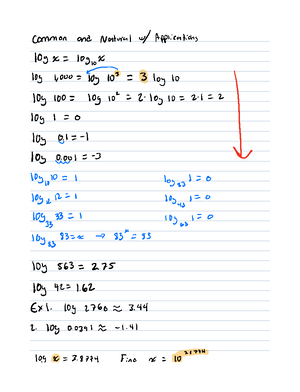 Common and Natural w/ Applications
log x = log₁₀x
log 1,000 = log 10³ = 3 log 10
log 100 = log 10² = 2·log 10 = 2·1 = 2
log 1 = 0
log 0.1 = -1
log 0.001 = -3
log₁₀10 = 1 log₈₃ 1 = 0
log₁₂ 12 = 1 1 = 0
log₃₃ 33 = 1 1 = 0
log₈₃ 83 = x → 83ˣ =
log 563 = 2.75
log 42 = 1.62
Ex 1. log 2760 ≈ 3.44
2. log 0.0391 ≈ -1.41
log x = Find x = 10